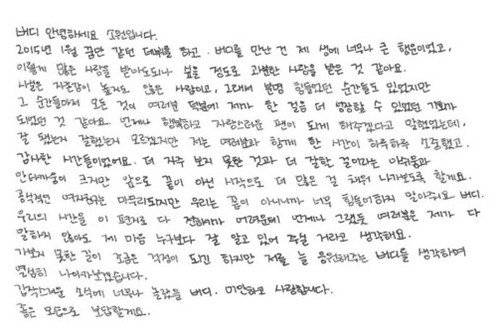 버디 안녕하세요 소원입니다.
2015년 1월 꿈만 같던 데뷔를 하고. 버디를 만난 건 제 생에 너무나 큰 행운이었고,
이렇게 많은 사랑을 받아도되나 싶을 정도로 과분한 사랑을 받은 것 같아요.
사실은 자존감이 높지도 않은 사람이고, 그래서 분명 힘들었던 순간들도 있었지만
그 순간들마저 모든 것이 여러분 덕분에 제가 한 걸음 더 성장할 수 있었던 기회가
되었던 것 같아요. 언제나 행복하고 자랑스러운 팬이 되게 해주겠다고 말했었는데,
잘 됐는지 잘했는지 모르겠지만 저는 여러분과 함께 한 시간이 하루하루 친절했고.
감사한 시간들이었어요. 더 자주 보지 못한 것과 더 잘할 걸이라는 아쉬움과
안타까움이 크지만 앞으로 끝이 아닌 시작으로 더 많은 걸 채워 나가보도록 할게요.
공식적인 여자친구는 마무리되지만 우리는 끝이 아니니까 너무 힘들어하지 말아주요 버디.
우리의 시간을 이 편지로 다 전하기가 어려운데 언제나 그랬듯 여러분은 제가 다
말하지 않아도 제 마음 누구보다 잘 알고 있어 주실 거라고 생각해요.
가보지 못한 길이 조금은 걱정이 되긴 하지만 저를 늘 응원해주는 버디들을 생각하며
열심히 나아가보겠습니다.
갑작스러운 소식에 너무나 놀랐을 버디. 미안하고 사랑합니다.
좋은 모습으로 보답할게요.